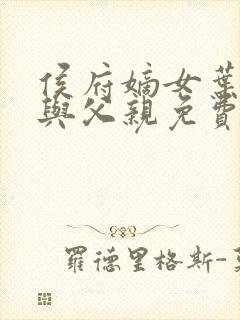 侯府嫡女葉
與父親免費
羅德里格斯-